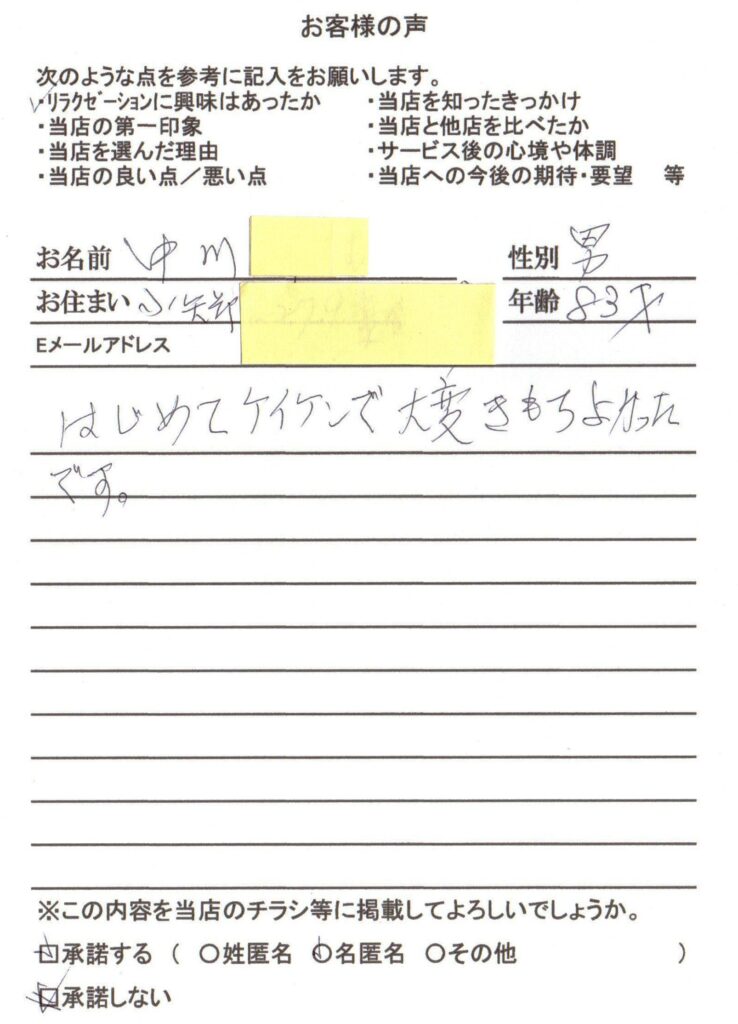 お客様の声
次のような点を参考に記入をお願いします。
・リラクゼーションに興味はあったか ・当店を知ったきっかけ
・当店の第一印象 ・当店と他店を比べたか
・当店を選んだ理由 ・サービス後の心境や体調
・当店の良い点／悪い点 ・当店への今後の期待・要望 等
お名前 中川 性別 男
お住まい 小矢部 年齢 83才
Eメールアドレス
はじめてケイケンで大変きもちよかった
です。
※この内容を当店のチラシ等に掲載してよろしいでしょうか。
□承諾する （ ○姓匿名 ○名匿名 ○その他 ）
□承諾しない